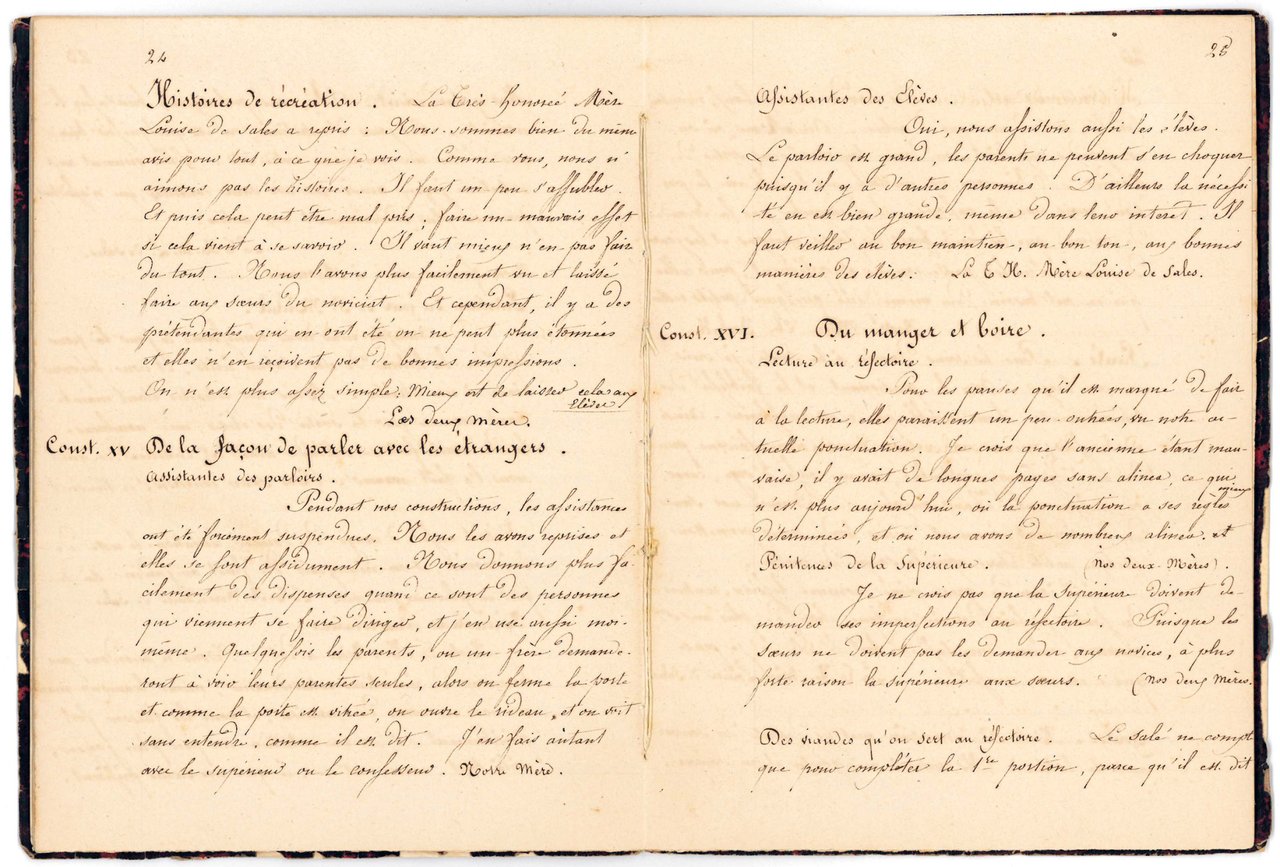 24
Histoires de récréation. La Très-honorée Mère
Louise de sales a repris : Nous sommes bien du même
avis pour tout, à ce que je vois. Comme vous, nous n'
aimons pas les histoires. Il faut un peu s'affubler.
Et puis cela peut être mal pris, faire un mauvais effet
si cela vient à se savoir. Il vaut mieux n'en pas faire
du tout. Nous l'avons plus facilement vu et laissé
faire aux sœurs du noviciat. Et cependant, il y a des
prétendantes qui en ont été on ne peut plus étonnées
et elles n'en reçoivent pas de bonnes impressions.
On n'est plus assez simple; Mieux est de laisser cela aux
Elèves
Les deux Mères.
Const. XV De la façon de parler avec les étrangers.
Assistantes des parloirs.
Pendant nos constructions, les assistances
ont été forcément suspendues. Nous les avons reprises et
elles se font assidument. Nous donnons plus fa-
cilement des dispenses quand ce sont des personnes
qui viennent se faire diriger, et j'en use aussi moi-
même. Quelquefois les parents, ou un frère demande-
ront à voir leurs parentes seules, alors on ferme la porte
et comme la porte est vitrée, on ouvre le rideau, et on voit
sans entendre, comme il est dit. J'en fais autant
avec le supérieur ou le confesseur. Notre Mère.
25
Assistantes des Elèves.
Oui, nous assistons aussi les élèves.
Le parloir est grand, les parents ne peuvent s'en choquer
puisqu'il y a d'autres personnes. D'ailleurs la nécessi
té en est bien grande, même dans leur intérêt. Il
faut veiller au bon maintien, au bon ton, aux bonnes
manières des élèves. La T. H. Mère Louise de Sales.
Const. XVI. Du manger et boire.
Lecture au réfectoire.
Pour les pauses qu'il est marqué de fair
à la lecture, elles paraissent un peu outrées, vu notre ac-
tuelle ponctuation. Je crois que l'ancienne étant mau-
vaise, il y avait de longues pages sans alinea, ce qui
n'est plus aujourd'hui, où la ponctuation a ses règles mieux
déterminées, et où nous avons de nombreux alinea.
Pénitences de la Supérieure. (Nos deux Mères).
Je ne crois pas que la Supérieure doivent de-
mander ses imperfections au réfectoire. Puisque les
sœurs ne doivent pas les demander aux novices, à plus
forte raison la supérieure aux sœurs. (Nos deux Mères.
Des viandes qu'on sert au réfectoire. Le salé ne compt
que pour compléter la 1re portion, parce qu'il est dit